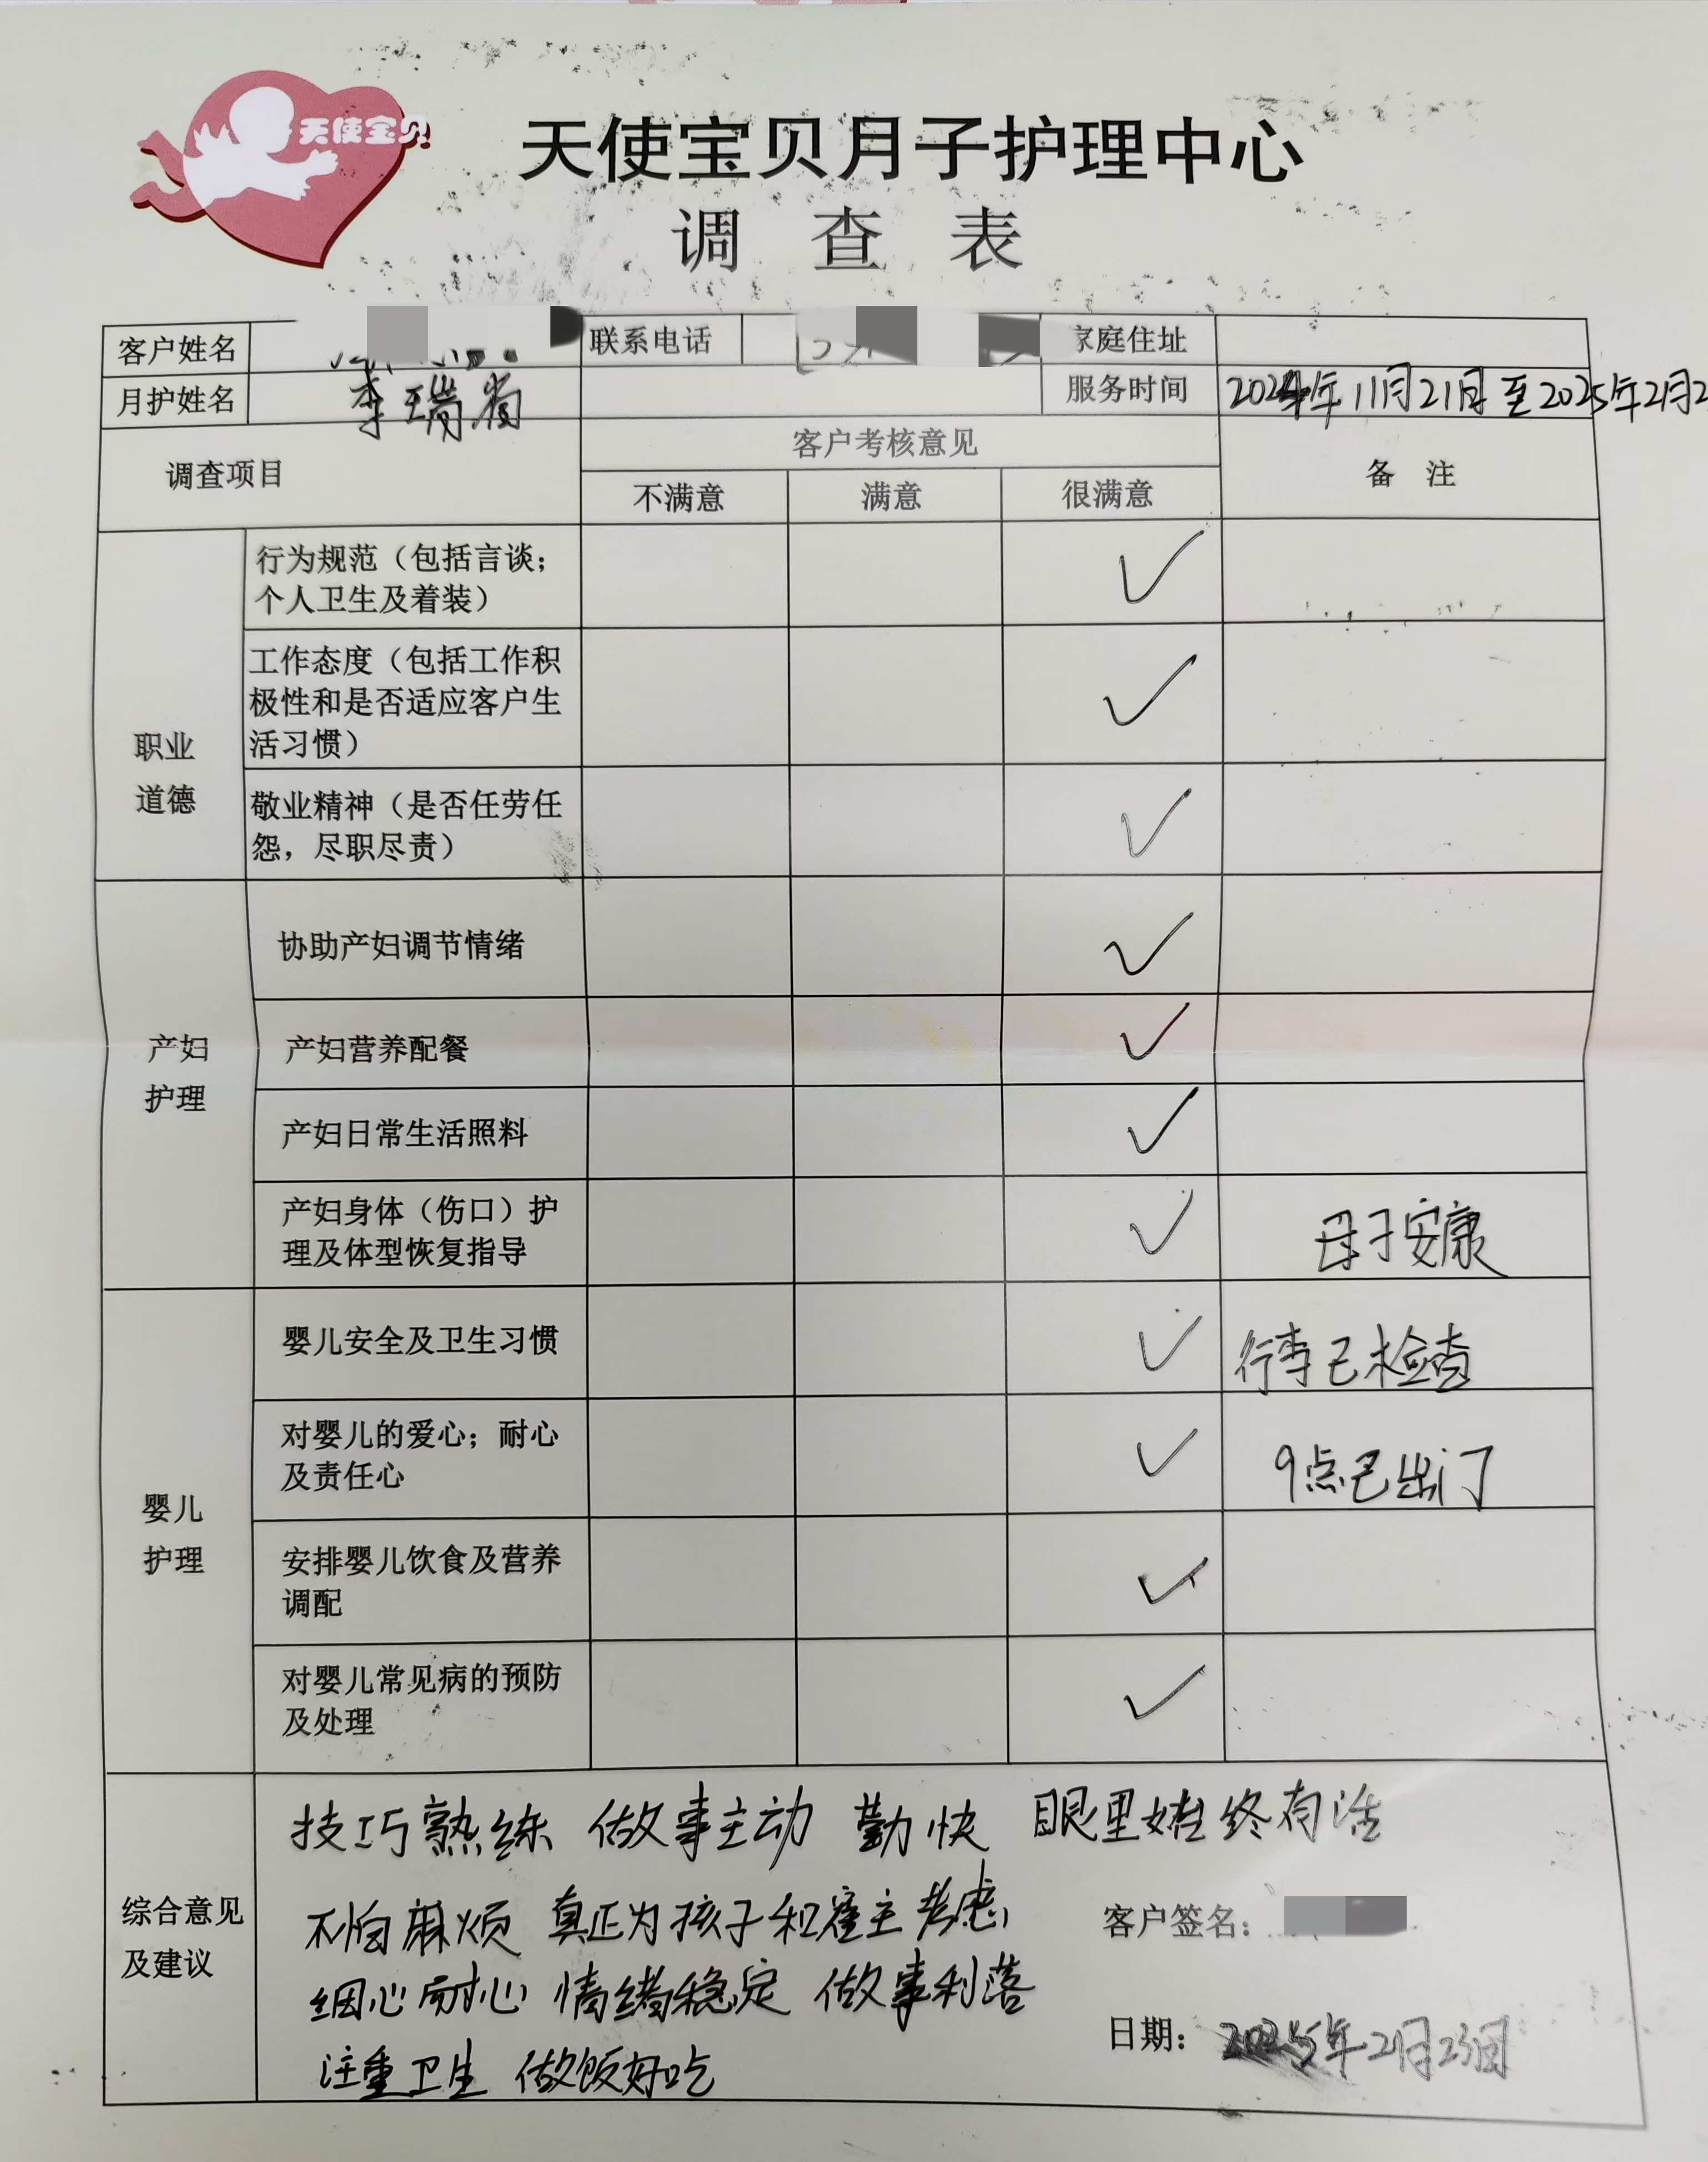 天使宝贝
天使宝贝月子护理中心
调 查 表
客户姓名 联系电话 家庭住址
月护姓名 李瑞 服务时间 2024年11月21日至2025年2月2
调查项目 客户考核意见 备 注
不满意 满意 很满意
职业
道德
行为规范（包括言谈；
个人卫生及着装）
工作态度（包括工作积
极性和是否适应客户生
活习惯）
敬业精神（是否任劳任
怨，尽职尽责）
产妇
护理
协助产妇调节情绪
产妇营养配餐
产妇日常生活照料
产妇身体（伤口）护
理及体型恢复指导
母子安康
婴儿
护理
婴儿安全及卫生习惯
行李已检查
对婴儿的爱心；耐心
及责任心
9点已出门
安排婴儿饮食及营养
调配
对婴儿常见病的预防
及处理
综合意见
及建议
技巧熟练 做事主动 勤快 眼里始终有活
不怕麻烦 真正为孩子和雇主考虑
细心耐心 情绪稳定 做事利落
注重卫生 做饭好吃
客户签名：
日期：2025年2月23日